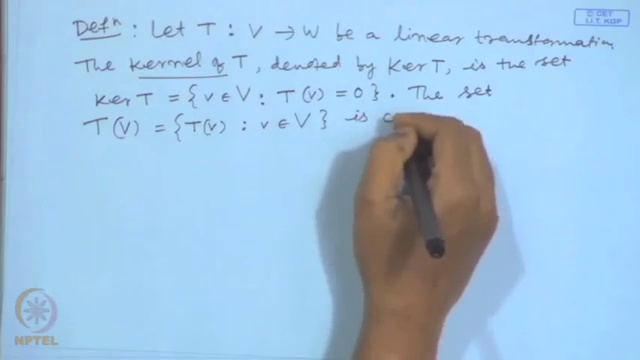 © CET
I.I.T. KGP
Defⁿ : Let T : V → W be a linear transformation.
The Kernel of T, denoted by Ker T, is the set
Ker T = { v ∈ V : T(v) = 0 }. The set
T(V) = { T(v) : v ∈ V } is c
NPTEL